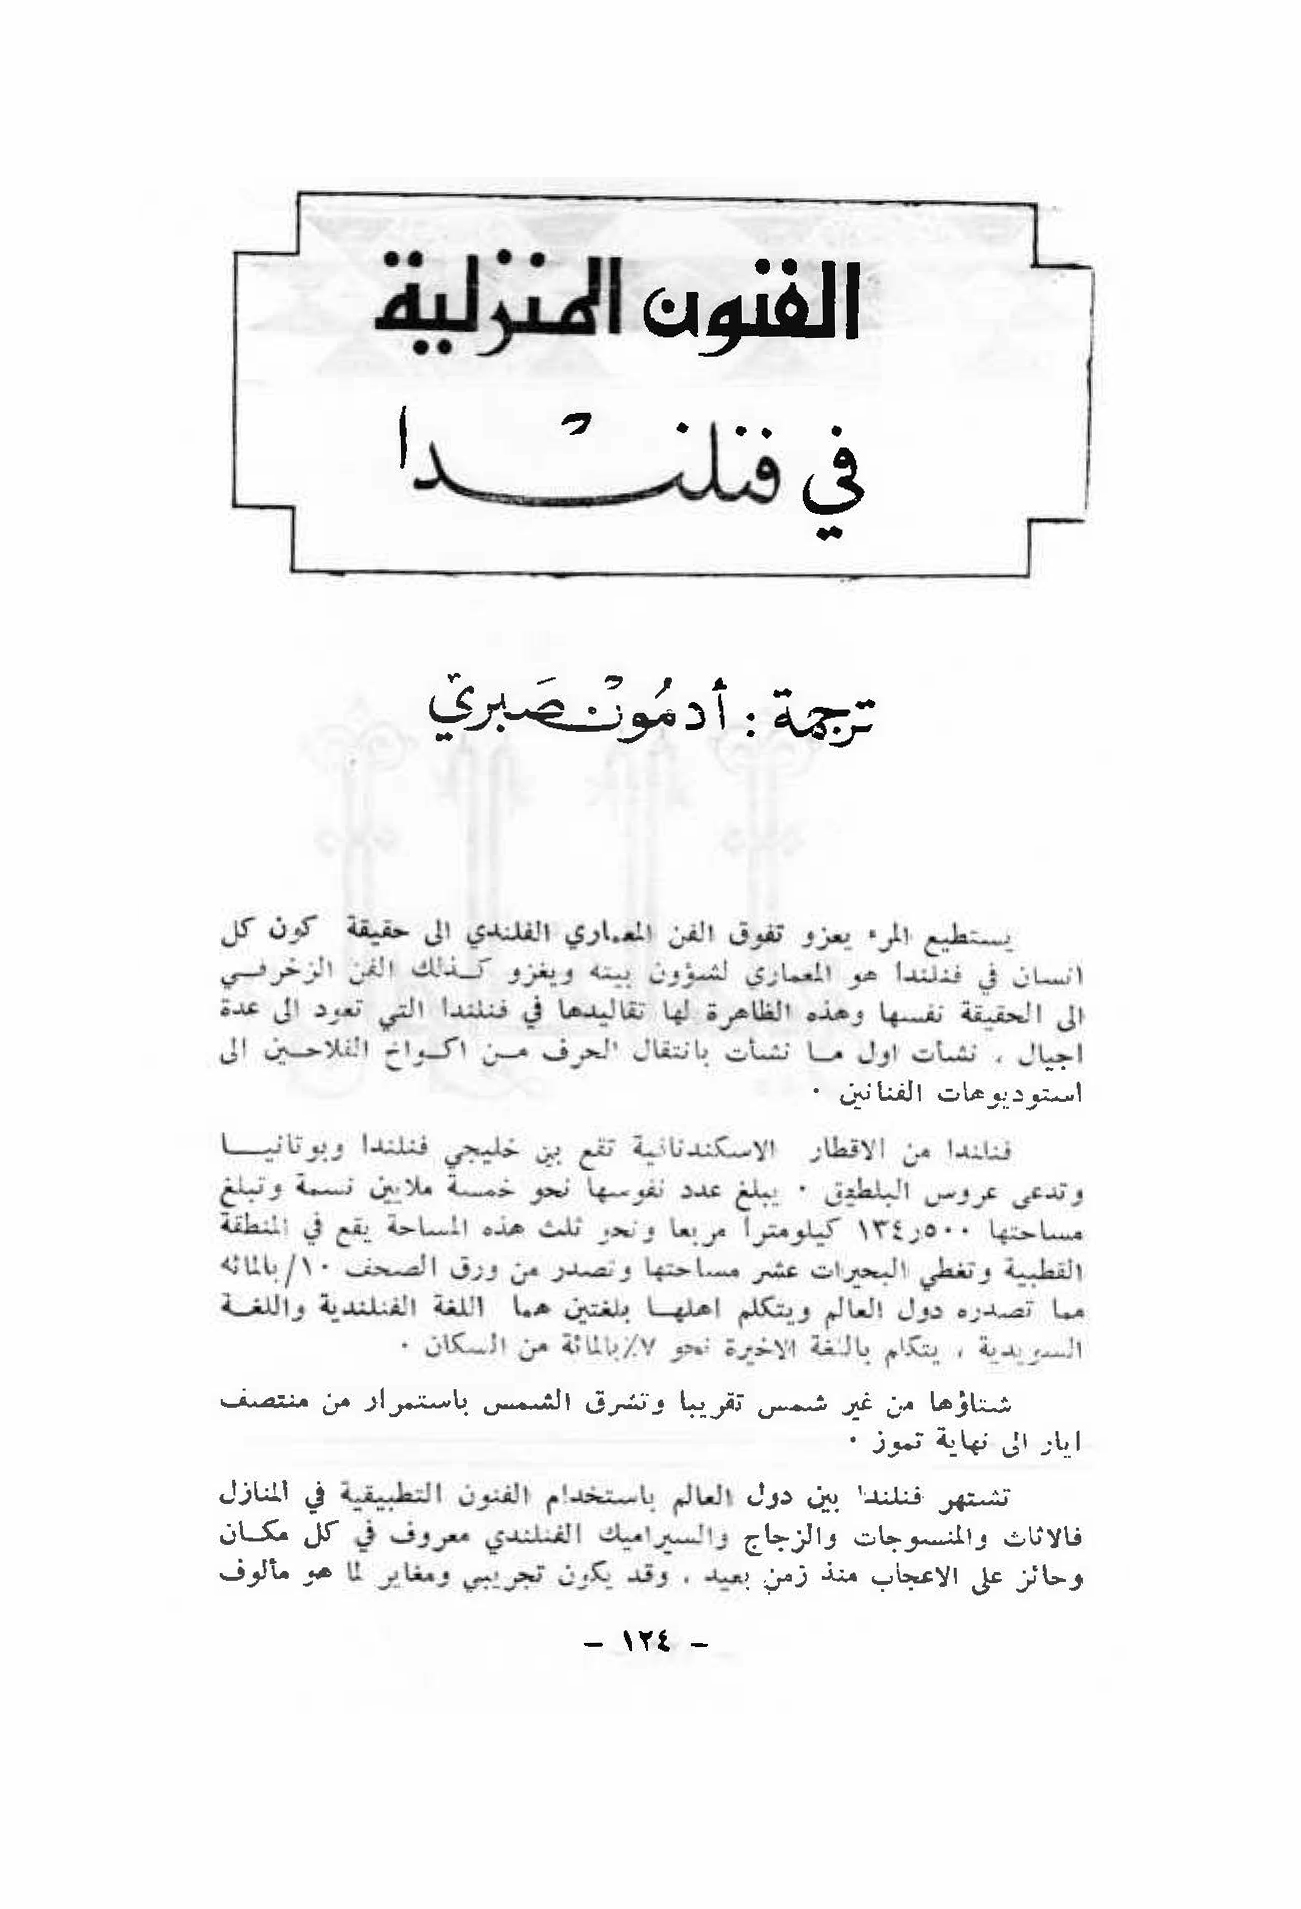 الفنون المنزلية
في فنلندا
ترجمة : أدمون صبري
يستطيع المرء يعزو تفوق الفن المعماري الفلندي الى حقيقة كون كل
انسان في فنلندا هو المعماري لشؤون بيته ويغزو كذلك الفن الزخرفي
الى الحقيقة نفسها وهذه الظاهرة لها تقاليدها في فنلندا التي تعود الى عدة
اجيال . نشأت اول ما نشأت بانتقال الحرف من اكواخ الفلاحين الى
استوديوهات الفنانين .
فنلندا من الاقطار الاسكندنافية تقع بين خليجي فنلندا وبوتانيا
وتدعى عروس البلطيق . يبلغ عدد نفوسها نحو خمسة ملايين نسمة وتبلغ
مساحتها ١٣٤ر٥٠٠ كيلومترا مربعا ونحو ثلث هذه المساحة يقع في المنطقة
القطبية وتغطي البحيرات عشر مساحتها وتصدر من ورق الصحف ١٠/بالمائه
مما تصدره دول العالم ويتكلم اهلها بلغتين هما اللغة الفنلندية واللغة
السويدية . يتكلم باللغة الاخيرة نحو ٧٪بالمائة من السكان .
شتاؤها من غير شمس تقريبا وتشرق الشمس باستمرار من منتصف
ايار الى نهاية تموز .
تشتهر فنلندا بين دول العالم باستخدام الفنون التطبيقية في المنازل
فالاثاث والمنسوجات والزجاج والسيراميك الفنلندي معروف في كل مكان
وحائز على الاعجاب منذ زمن بعيد . وقد يكون تجريبي ومغاير لما هو مألوف
– ١٢٤ –